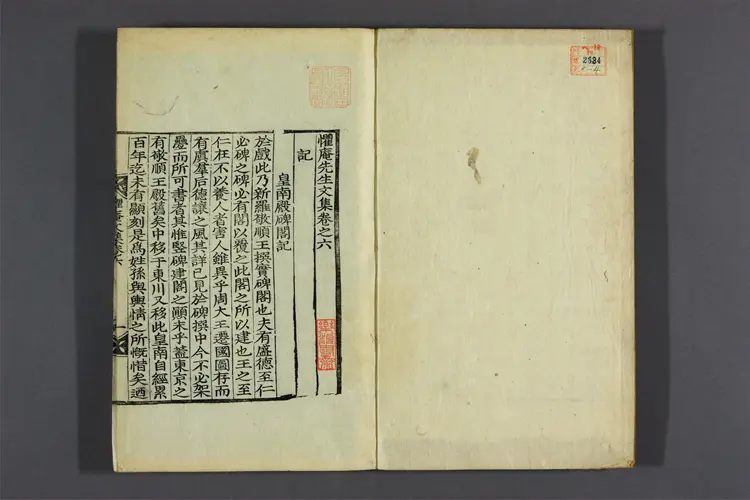 懼庵先生文集卷之六
記
皇南殿碑閣記
於戲此乃新羅敬順王撰實碑閣也夫有盛德至仁
必碑之碑必有閣以覆之此閣之所以建也王之至
仁在不以養人者害人雖異乎周大王遷國圖存而
有虞羣后德讓之風其詳已見於碑撰中今不必架
疊而所可書者其惟竪碑建閣之顚末乎蓋東京之
有敬順王殿舊矣中移于東川又移此皇南自經累
百年迄未有顯刻是爲姓孫與輿情之所慨惜矣迺
2684